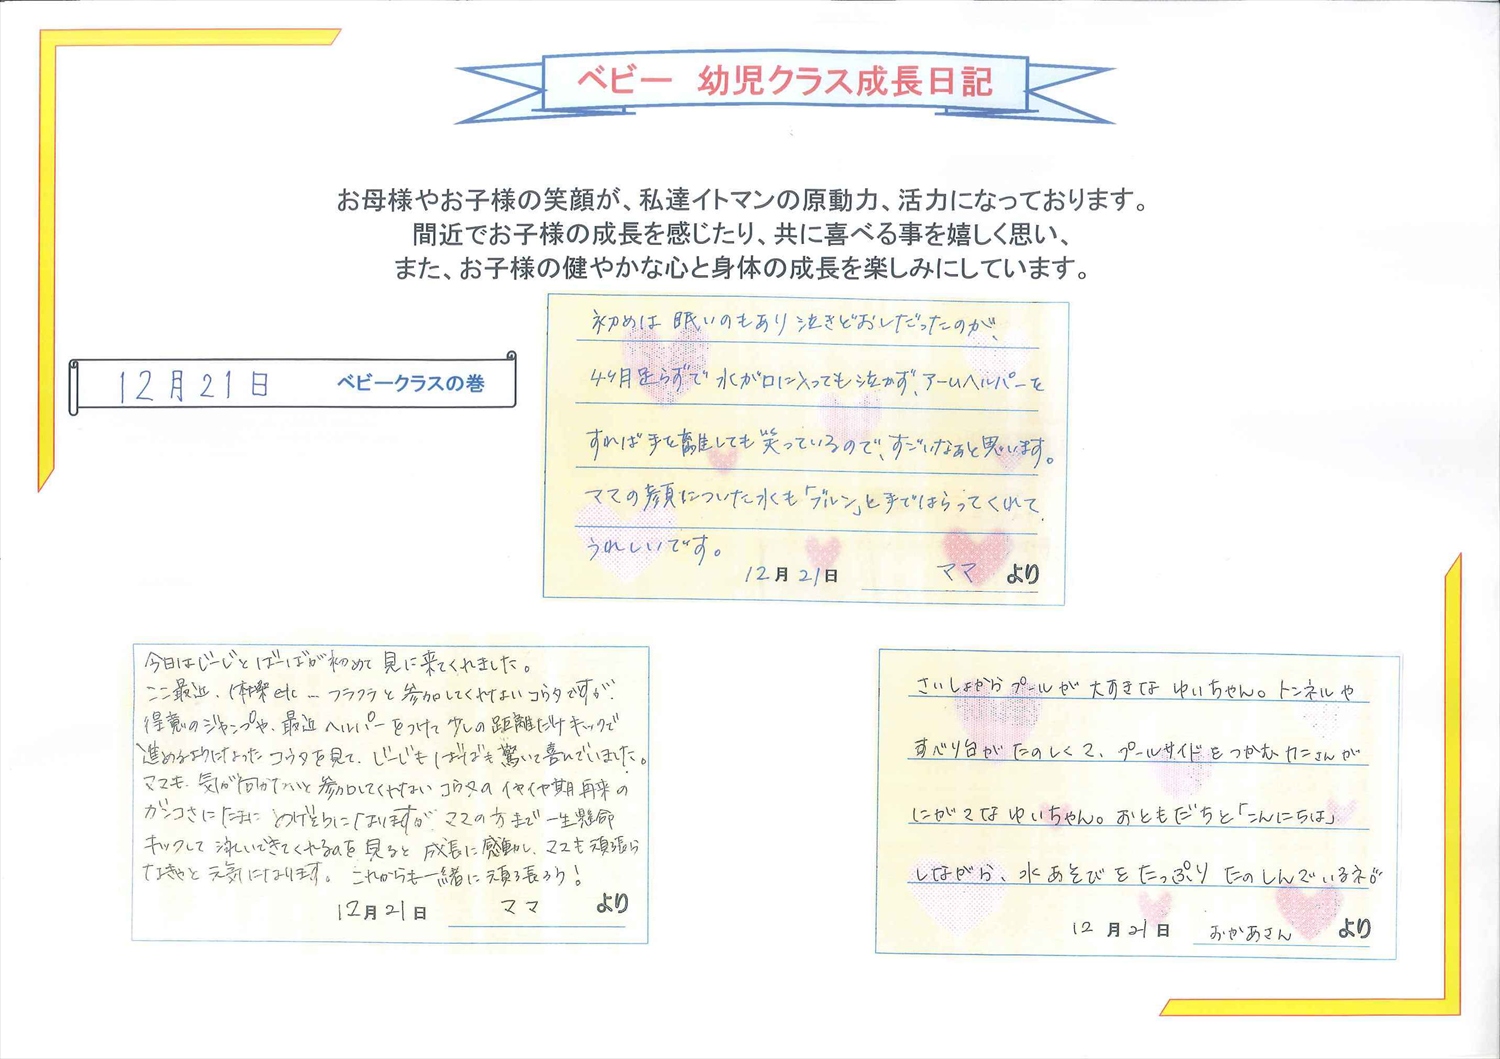 ベビー 幼児クラス成長日記
お母様やお子様の笑顔が、私達イトマンの原動力、活力になっております。
間近でお子様の成長を感じたり、共に喜べる事を嬉しく思い、
また、お子様の健やかな心と身体の成長を楽しみにしています。
12月21日 ベビークラスの巻
初めは眠いのもあり泣きどおしだったのが、
4ヶ月足らずで水が口に入っても泣かず、アームヘルパーを
すれば手を離しても笑っているので、すごいなぁと思います。
ママの顔についた水も「ブルン」と手ではらってくれて
うれしいです。
12月21日 ママ より
今日はじーじとばーばが初めて見に来てくれました。
ここ最近、体操etc…フラフラと参加してくれないコウタですが、
得意のジャンプや、最近ヘルパーをつけて少しの距離だけキックで
進めるようになったコウタを見て、じーじもばーばも驚いて喜んでいました。
ママも、気が向かないと参加してくれないコウタのイヤイヤ期再来の
ガンコさにたまにめげそうになりますが、ママの方まで一生懸命
キックして泳いできてくれるのを見ると成長に感動し、ママも頑張ら
なきゃと元気になります。これからも一緒に頑張ろう!
12月21日 ママ より
さいしょからプールが大すきなゆいちゃん。トンネルや
すべり台がたのしくて、プールサイドをつかむカニさんが
にがてなゆいちゃん。おともだちと「こんにちは」
しながら、水あそびをたっぷりたのしんでいるネ♪
12月21日 おかあさん より